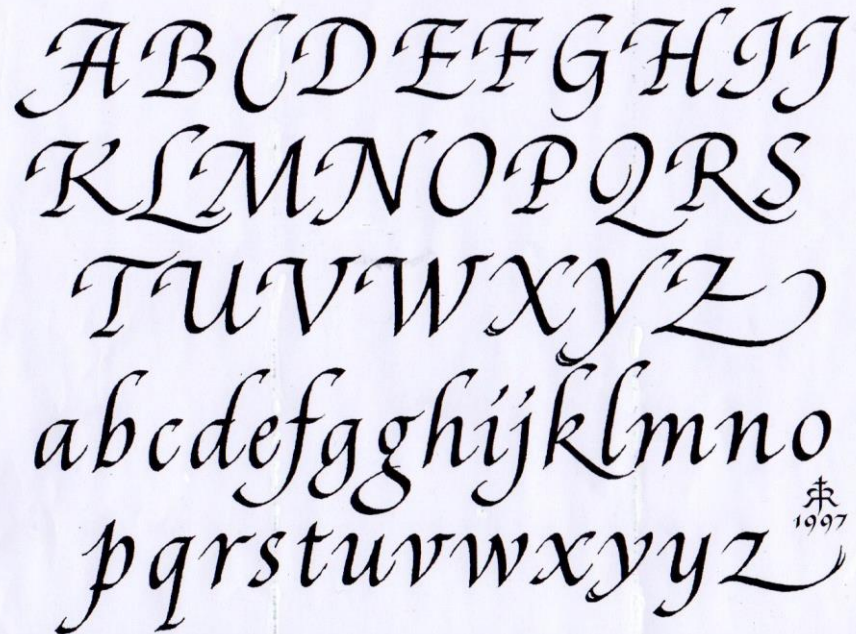 ABCDEFGHIJ
KLMNOPQRS
TUVWXYZ
abcdefgghijklmno
pqrstuvwxyyz
1997